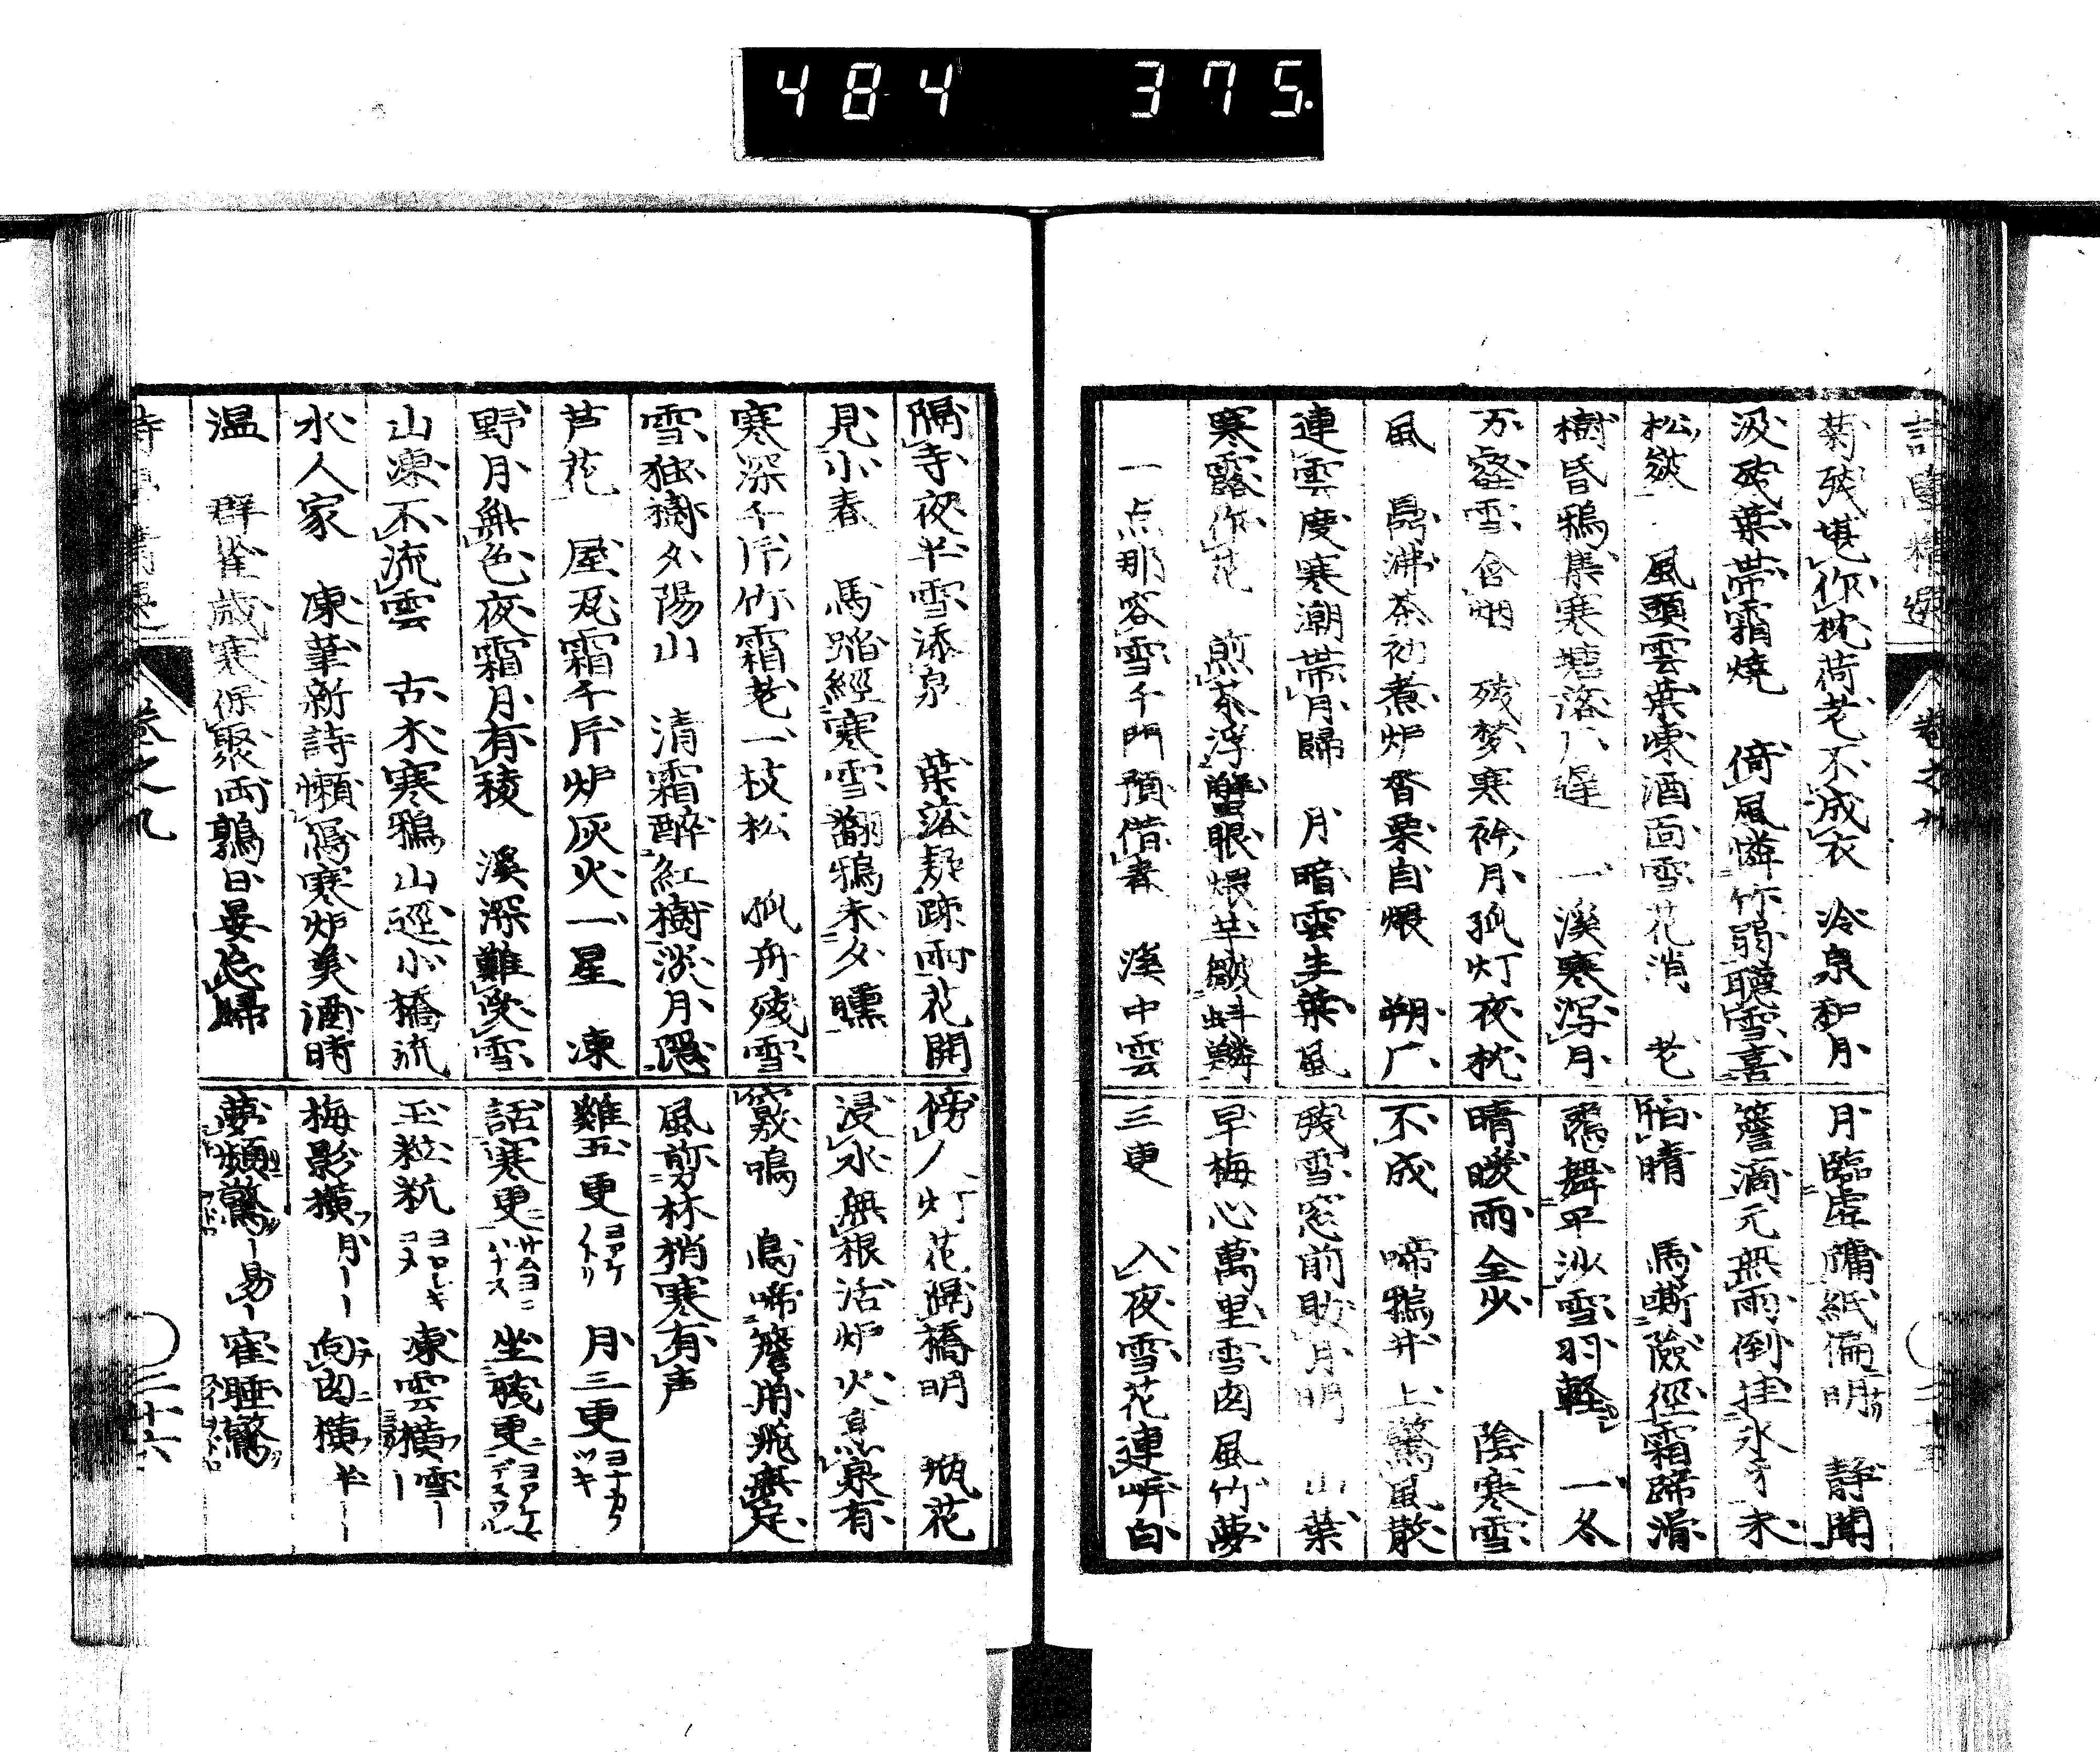 484 375.
卷之九
菊残堪作枕荷老不成衣 冷泉和月
汲残葉帯霜焼 倚風憐竹弱聴雪喜
松 風頭雲葉凍酒面雪花消 老
樹昏鴉集寒塘落厂遅 一溪寒瀉月
万壑雪含烟 残梦寒衿月孤灯夜枕
風 茶初煮炉香栗自煨 朔厂
連雲度寒潮帯月歸 月暗雲生葉風
寒露作花 煎茶浮蟹眼煨芋皺蚪鱗
一点那容雪千門預借春 溪中雲
月臨虚牖紙偏明 静聞
簷滴元無雨倒挂氷牙未
怕晴 馬嘶險徑霜蹄滑
舞平沙雪羽軽 一冬
晴暖雨全少 陰寒雪
不成 啼鴉井上驚風散
残雪窓前助月明 山葉
早梅心萬里雪図風竹夢
三更 入夜雪花連岸白
隔寺夜半雪添泉 葉落疑疎雨花開
見小春 馬蹈經寒雪翻鴉未夕曛
寒深千斤竹霜老一枝松 孤舟残雪
雪独樹夕陽山 清霜酔紅樹淡月隠
芦花 屋瓦霜千斤炉灰火一星 凍
野月無色夜霜月有稜 溪深難受雪
山凍不流雲 古木寒鴉山逕小橋流
水人家 凍筆新詩懶寫寒炉美酒時
温 群雀歳寒保聚両鶉日晏忘歸
傍 灯花隔橋明 瓶花
浸水無根活炉火息泉有
鳴 鳥啼簷角飛無定
風剪林梢寒有声
難五更 ヨアケノトリ 月三更 ヨナカツキ
話寒更 サムヨニハナス 坐残更
玉粒粇 ヨロシキコメ 凍雲横 雪
梅影横 月 向図横 半
夢頻驚 易 寉睡驚
卷之九
二十六